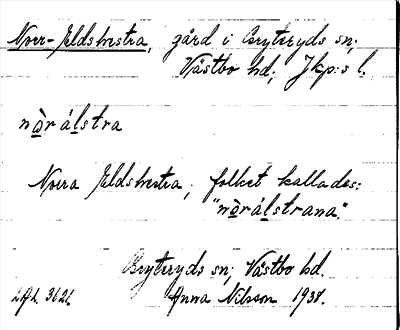 Norr-Eldshestra, gård i Bryteryds sn;
Västbo hd; Jkp:s l.
nòrálstra
Norra Eldshestra; folket kallades:
"nòrálstrana".
Bryteryds sn; Västbo hd.
Anna Nilsson 1938.